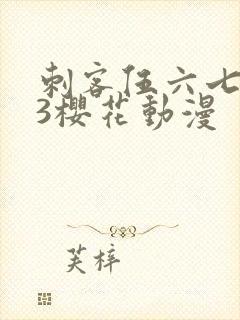 刺客伍六七
3櫻花動漫
芙梓